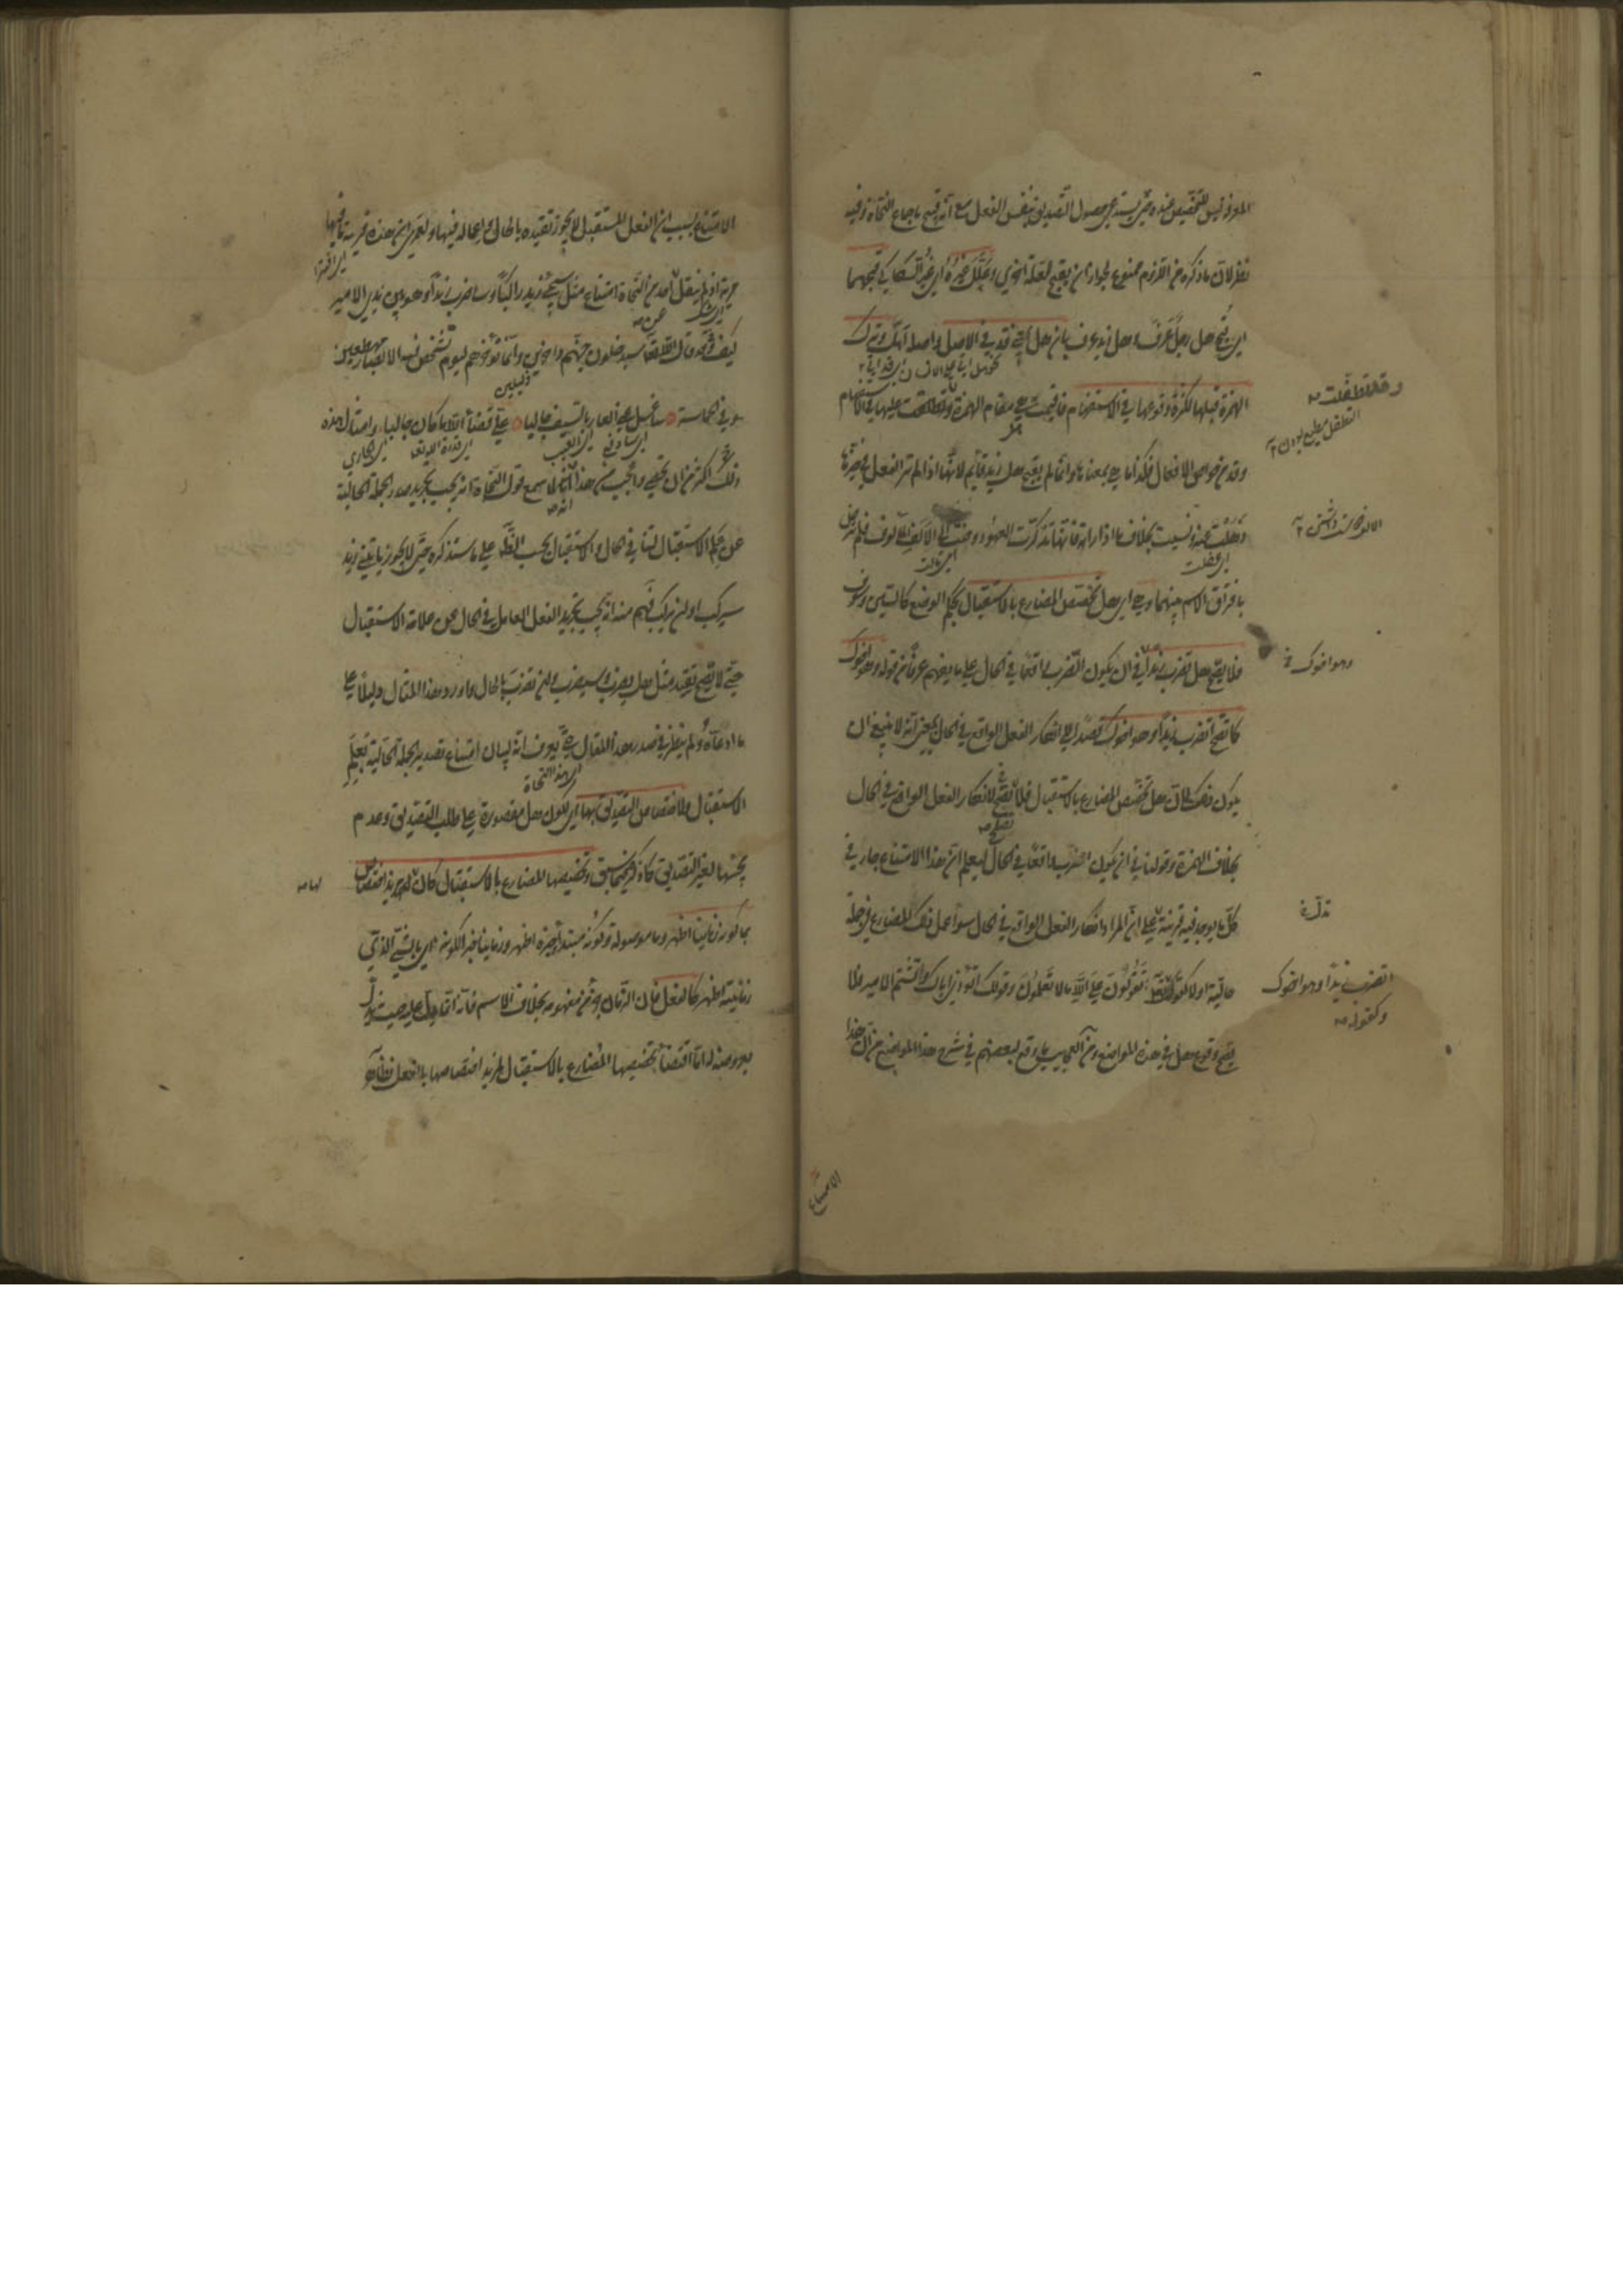 المعرفة ليس للتخصيص عنده حتى يستدعي حصول التصديق بنفس الفعل مع انه قبيح باجماع النحاة وفيه
نظر لان ما ذكره من اللزوم ممنوع لجواز ان يقبح لعلة اخرى وعلل غيره اي غير السكاكي قبحهما
اي قبح هل رجل عرف وهل زيد عرف بان هل بمعنى قد في الاصل واصله أهل وترك
الهمزة قبلها لكثرة وقوعها في الاستفهام فاقيمت هي مقام الهمزة وتطفلت عليها في الاستفهام
وقد من خواص الافعال فكذا ما هي بمعناها وانما لم يقبح هل زيد قائم لانها اذا لم تر الفعل في حيزها
ذهلت عنه ونسيت بخلاف ما اذا راته فانها تذكرت العهود وحنت الى الالف المألوف فلم ترض
اي غفلت
اي مالت
بافتراق الاسم بينهما وهي اي هل تخصص المضارع بالاستقبال بحكم الوضع كالسين وسوف
فلا يصح هل تضرب زيدا في ان يكون الضرب واقعا في الحال على ما يفهم عرفا من قوله وهو اخوك
كما يصح أتضرب زيدا وهو اخوك قصدا الى انكار الفعل الواقع في الحال بمعنى انه لا ينبغي ان
يكون ذلك لان هل تخصص المضارع بالاستقبال فلا تصلح لانكار الفعل الواقع في الحال
بخلاف الهمزة وقولنا في ان يكون الضرب واقعا في الحال ليعلم ان هذا الامتناع جار في
كل ما يوجد فيه قرينة تدل على ان المراد انكار الفعل الواقع في الحال سواء عمل ذلك المضارع في جملة
حالية او لا كقوله تعالى أتقولون على الله ما لا تعلمون وقولك أتؤذي اباك وأتشتم الامير فلا
يصح وقوع هل في هذه المواضع ومن العجائب ما وقع لبعضهم في شرح هذا الموضع من ان هذا
وقد تطفلت
وهو اخوك
تدل
اتضرب زيدا وهو اخوك
وكقوله
الامتناع
الامتناع بسبب ان الفعل المستقبل لا يجوز تقييده بالحال واعماله فيها ولعمري ان هذه فرية ما فيها
مرية اذ لم ينقل عن احد من النحاة امتناع مثل سيجيء زيد راكبا وساضرب زيدا وهو بين يدي الامير
كيف وقد قال الله تعالى سيدخلون جهنم داخرين وانما يؤخرهم ليوم تشخص فيه الابصار مهطعين
وفي الحماسة سأغسل عني العار بالسيف جالبا علي قضاء الله ما كان جالبا وامثال هذه
ذلك اكثر من ان تحصى واعجب من هذا انه لما سمع قول النحاة انه يجب تجريد صدر الجملة الحالية
عن علم الاستقبال لتنافي الحال والاستقبال بحسب الظاهر على ما سنذكره حتى لا يجوز يأتيني زيد
سيركب او لن يركب فهم منه انه يجب تجريد الفعل العامل في الحال عن علامة الاستقبال
حتى لا يصح تقييد مثل هل يضرب وسيضرب ولن تضرب بالحال واورد هذا المقال دليلا على
ما ادعاه ولم ينظر في صدر هذا المقال حتى يعرف انه لبيان امتناع تصدير الجملة الحالية بعلم
الاستقبال ولاختصاص التصديق بها اي لكون هل مقصورة على طلب التصديق وعدم
مجيئها لغير التصديق كما ذكر فيما سبق وتخصيصها المضارع بالاستقبال كان لها مزيد اختصاص
بما كونه زمانيا اظهر وما موصولة وكونه مبتدأ خبره اظهر وزمانيا خبر الكون اي بالشيء الذي
زمانيته اظهر كالفعل فان الزمان جزء من مفهومه بخلاف الاسم فانه انما يدل عليه حيث يدل
بعروضه له اما اقتضاء تخصيصها المضارع بالاستقبال لمزيد اختصاصها بالفعل فظاهر
لها